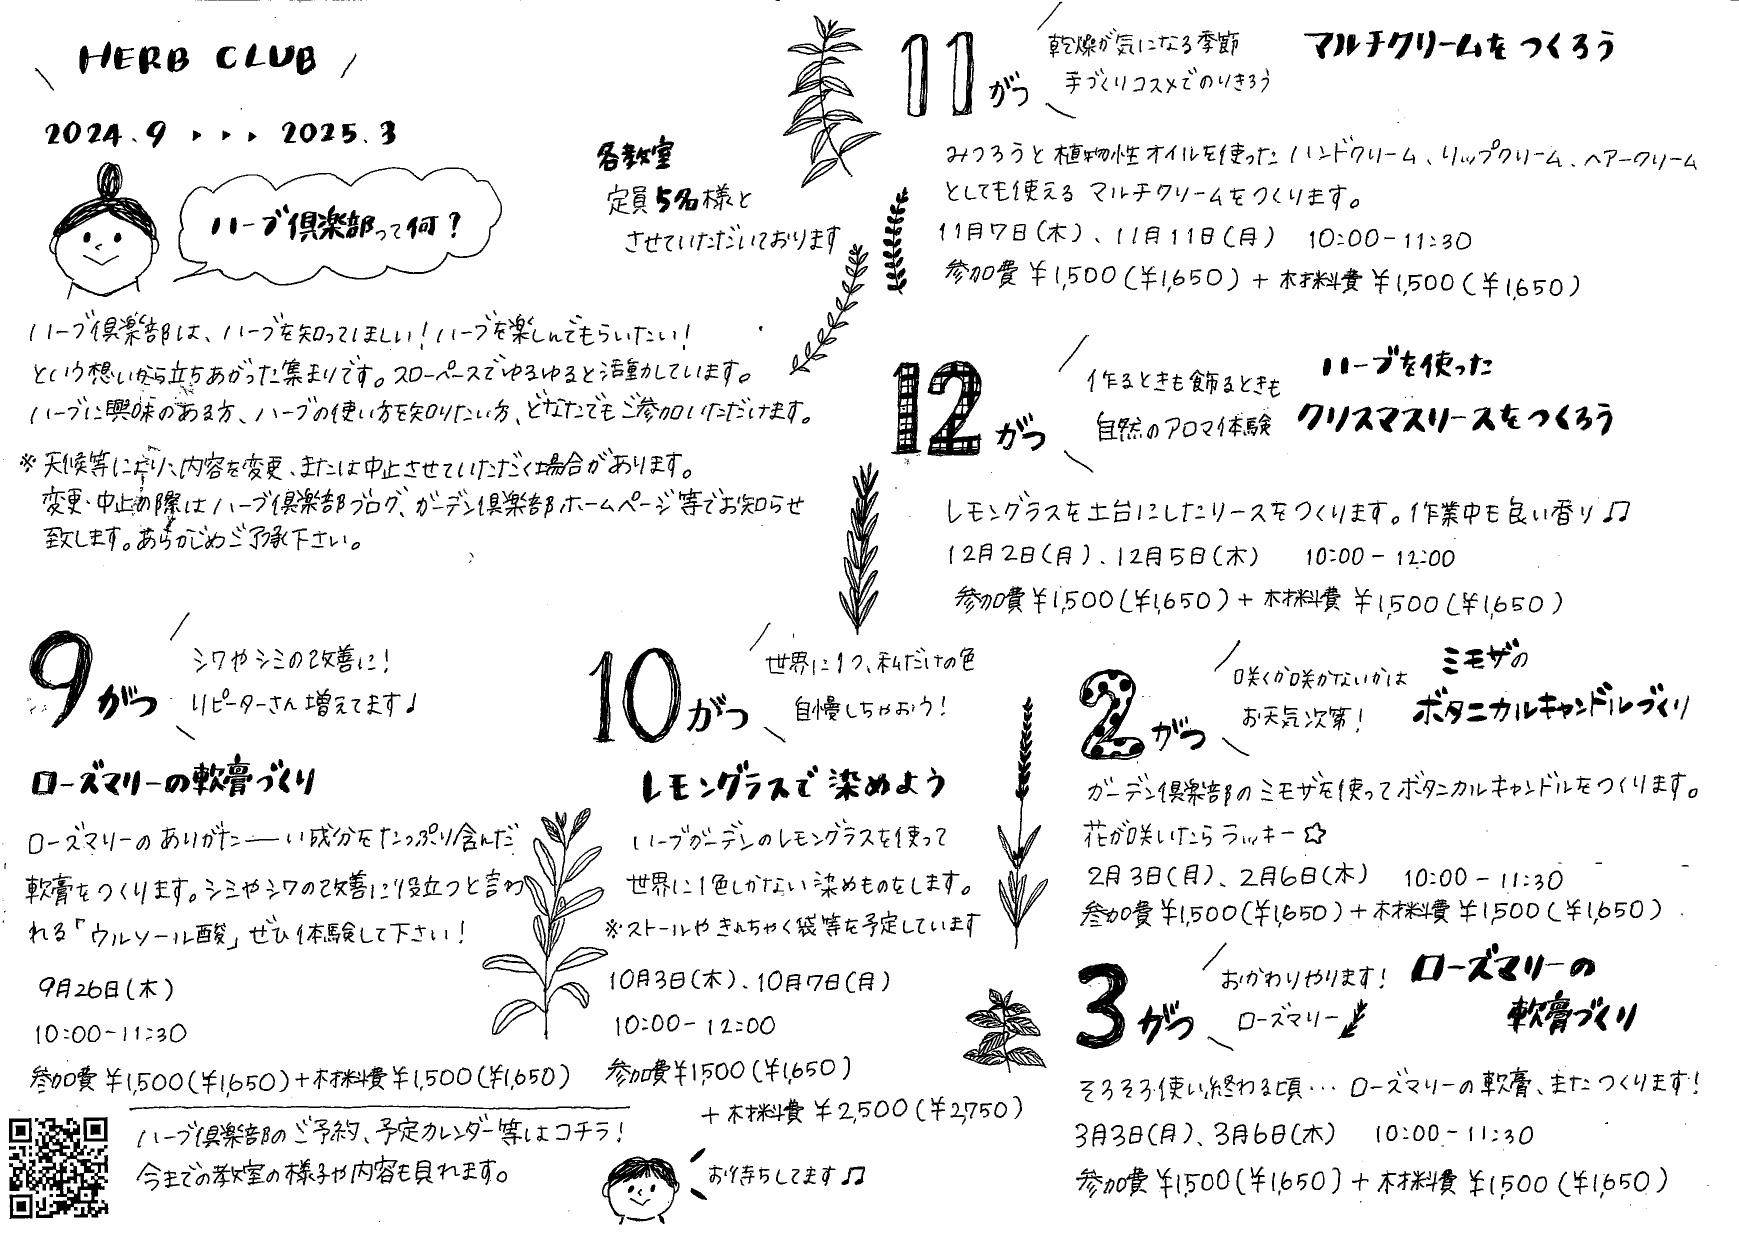 HERB CLUB
2024.9 ▸ ▸ ▸ 2025.3
ハーブ倶楽部って何?
各教室
定員5名様と
させていただいております
ハーブ倶楽部は、ハーブを知ってほしい!ハーブを楽しんでもらいたい!
という想いから立ちあがった集まりです。スローペースでゆるゆると活動しています。
ハーブに興味のある方、ハーブの使い方を知りたい方、どなたでもご参加いただけます。
※天候等により、内容を変更、または中止させていただく場合があります。
変更・中止の際はハーブ倶楽部ブログ、ガーデン倶楽部ホームページ等でお知らせ
致します。あらかじめご了承下さい。
9がつ
シワやシミの改善に!
リピーターさん増えてます♪
ローズマリーの軟膏づくり
ローズマリーのありがたーい成分をたっぷり含んだ
軟膏をつくります。シミやシワの改善に役立つと言わ
れる「ウルソール酸」ぜひ体験して下さい!
9月26日(木)
10:00-11:30
参加費¥1,500(¥1,650)+材料費¥1,500(¥1,650)
ハーブ倶楽部のご予約、予定カレンダー等はコチラ!
今までの教室の様子や内容も見れます。
10がつ
世界に1つ、私だけの色
自慢しちゃおう!
レモングラスで染めよう
ハーブガーデンのレモングラスを使って
世界に1色しかない染めものをします。
※ストールやきんちゃく袋等を予定しています
10月3日(木)、10月7日(月)
10:00-12:00
参加費¥1,500(¥1,650)
+材料費¥2,500(¥2,750)
お待ちしてます♫
11がつ
乾燥が気になる季節
手づくりコスメでのりきろう
マルチクリームをつくろう
みつろうと植物性オイルを使ったハンドクリーム、リップクリーム、ヘアークリーム
としても使えるマルチクリームをつくります。
11月7日(木)、11月11日(月) 10:00-11:30
参加費¥1,500(¥1,650)+材料費¥1,500(¥1,650)
12がつ
作るときも飾るときも
自然のアロマ体験
ハーブを使った
クリスマスリースをつくろう
レモングラスを土台にしたリースをつくります。作業中も良い香り♫
12月2日(月)、12月5日(木) 10:00-12:00
参加費¥1,500(¥1,650)+材料費¥1,500(¥1,650)
2がつ
咲くか咲かないかは
お天気次第!
ミモザの
ボタニカルキャンドルづくり
ガーデン倶楽部のミモザを使ってボタニカルキャンドルをつくります。
花が咲いたらラッキー☆
2月3日(月)、2月6日(木) 10:00-11:30
参加費¥1,500(¥1,650)+材料費¥1,500(¥1,650)
3がつ
おかわりやります!
ローズマリー
ローズマリーの
軟膏づくり
そろそろ使い終わる頃…ローズマリーの軟膏、またつくります!
3月3日(月)、3月6日(木) 10:00-11:30
参加費¥1,500(¥1,650)+材料費¥1,500(¥1,650)